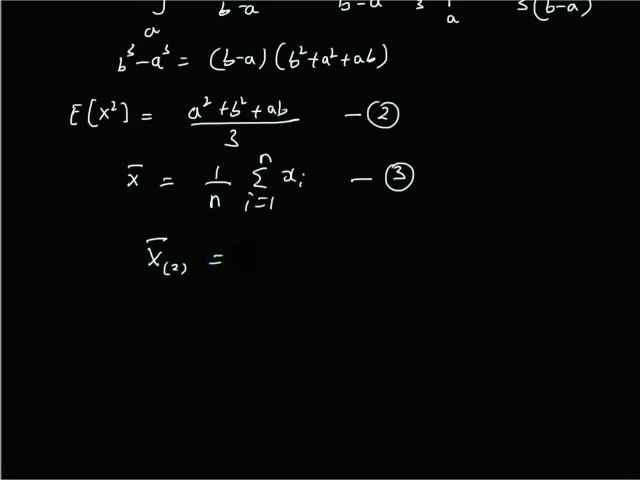 a b-a b-a 3 a 3(b-a)
b³-a³ = (b-a) (b²+a²+ab)
E[X²] = a²+b²+ab / 3 — ②
x̄ = 1/n Σ_{i=1}^{n} x_i — ③
X̄_(2) =